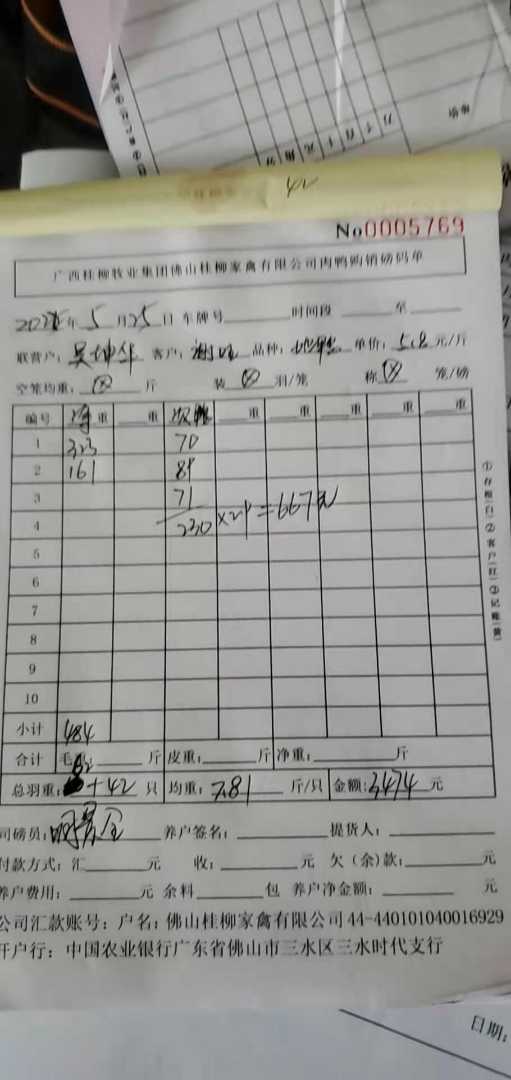 42
No0005769
广西桂柳牧业集团佛山桂柳家禽有限公司肉鸭购销磅码单
5月25日 车牌号 时间段 至
联营户：吴坤华 客户： 品种： 单价：5.8元/斤
空笼均重： 斤 装 羽/笼 称 笼/磅
编号 净重 重 次鸭 重 重 重 重 重
1 323 70
2 161 89
3 71
4 230×29=667元
5
6
7
8
9
10
小计 484
合计 毛重： 斤 皮重： 斤 净重： 斤
总羽重： +42 只 均重：7.81 斤/只 金额：3474元
司磅员： 养户签名： 提货人：
付款方式：汇 元 收： 元 欠（余）款： 元
养户费用： 元 余料 包 养户净金额： 元
公司汇款账号：户名：佛山桂柳家禽有限公司44-440101040016929
开户行：中国农业银行广东省佛山市三水区三水时代支行
①存根（白）②客户（红）③记账（黄）
日期：